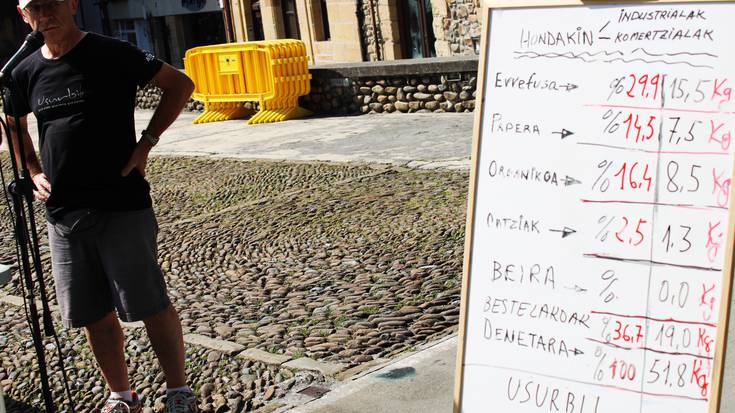 Usurbil
HONDAKIN INDUSTRIALAK
KOMERTZIALAK
Errefusa → % 29,9 15,5 Kg
PAPERA → % 14,5 7,5 Kg
ORGANIKOA → % 16,4 8,5 Kg
ONTZIAK → % 2,5 1,3 Kg
BEIRA % 0,0 Kg
BESTELAKOAK % 36,7 19,0 Kg
DENETARA → % 100 51,8 Kg
USURBIL